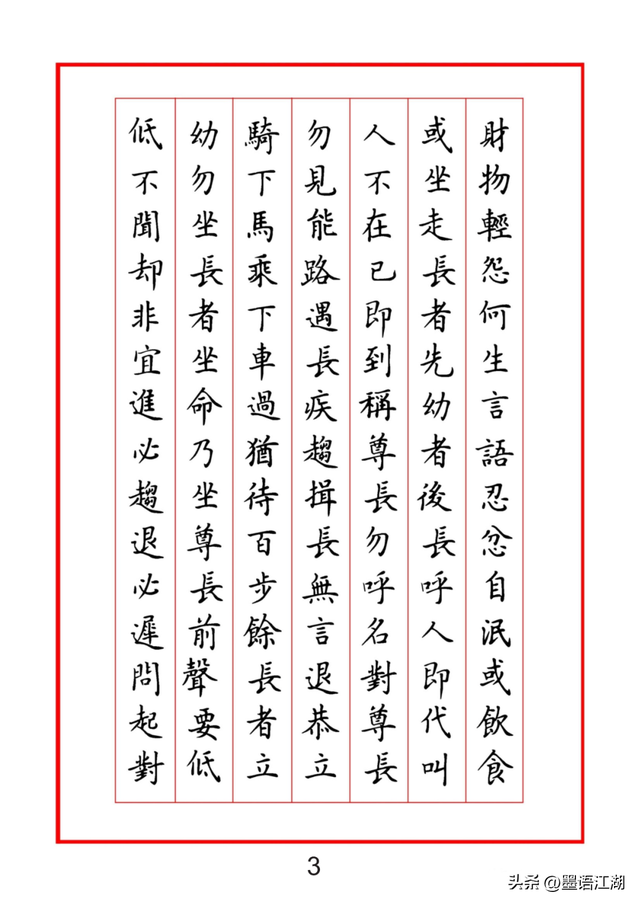 財物輕怨何生言語忍忿自泯或飲食
或坐走長者先幼者後長呼人即代叫
人不在已即到稱尊長勿呼名對尊長
勿見能路遇長疾趨揖長無言退恭立
騎下馬乘下車過猶待百步餘長者立
幼勿坐長者坐命乃坐尊長前聲要低
低不聞却非宜進必趨退必遲問起對
3
头条 @墨语江湖